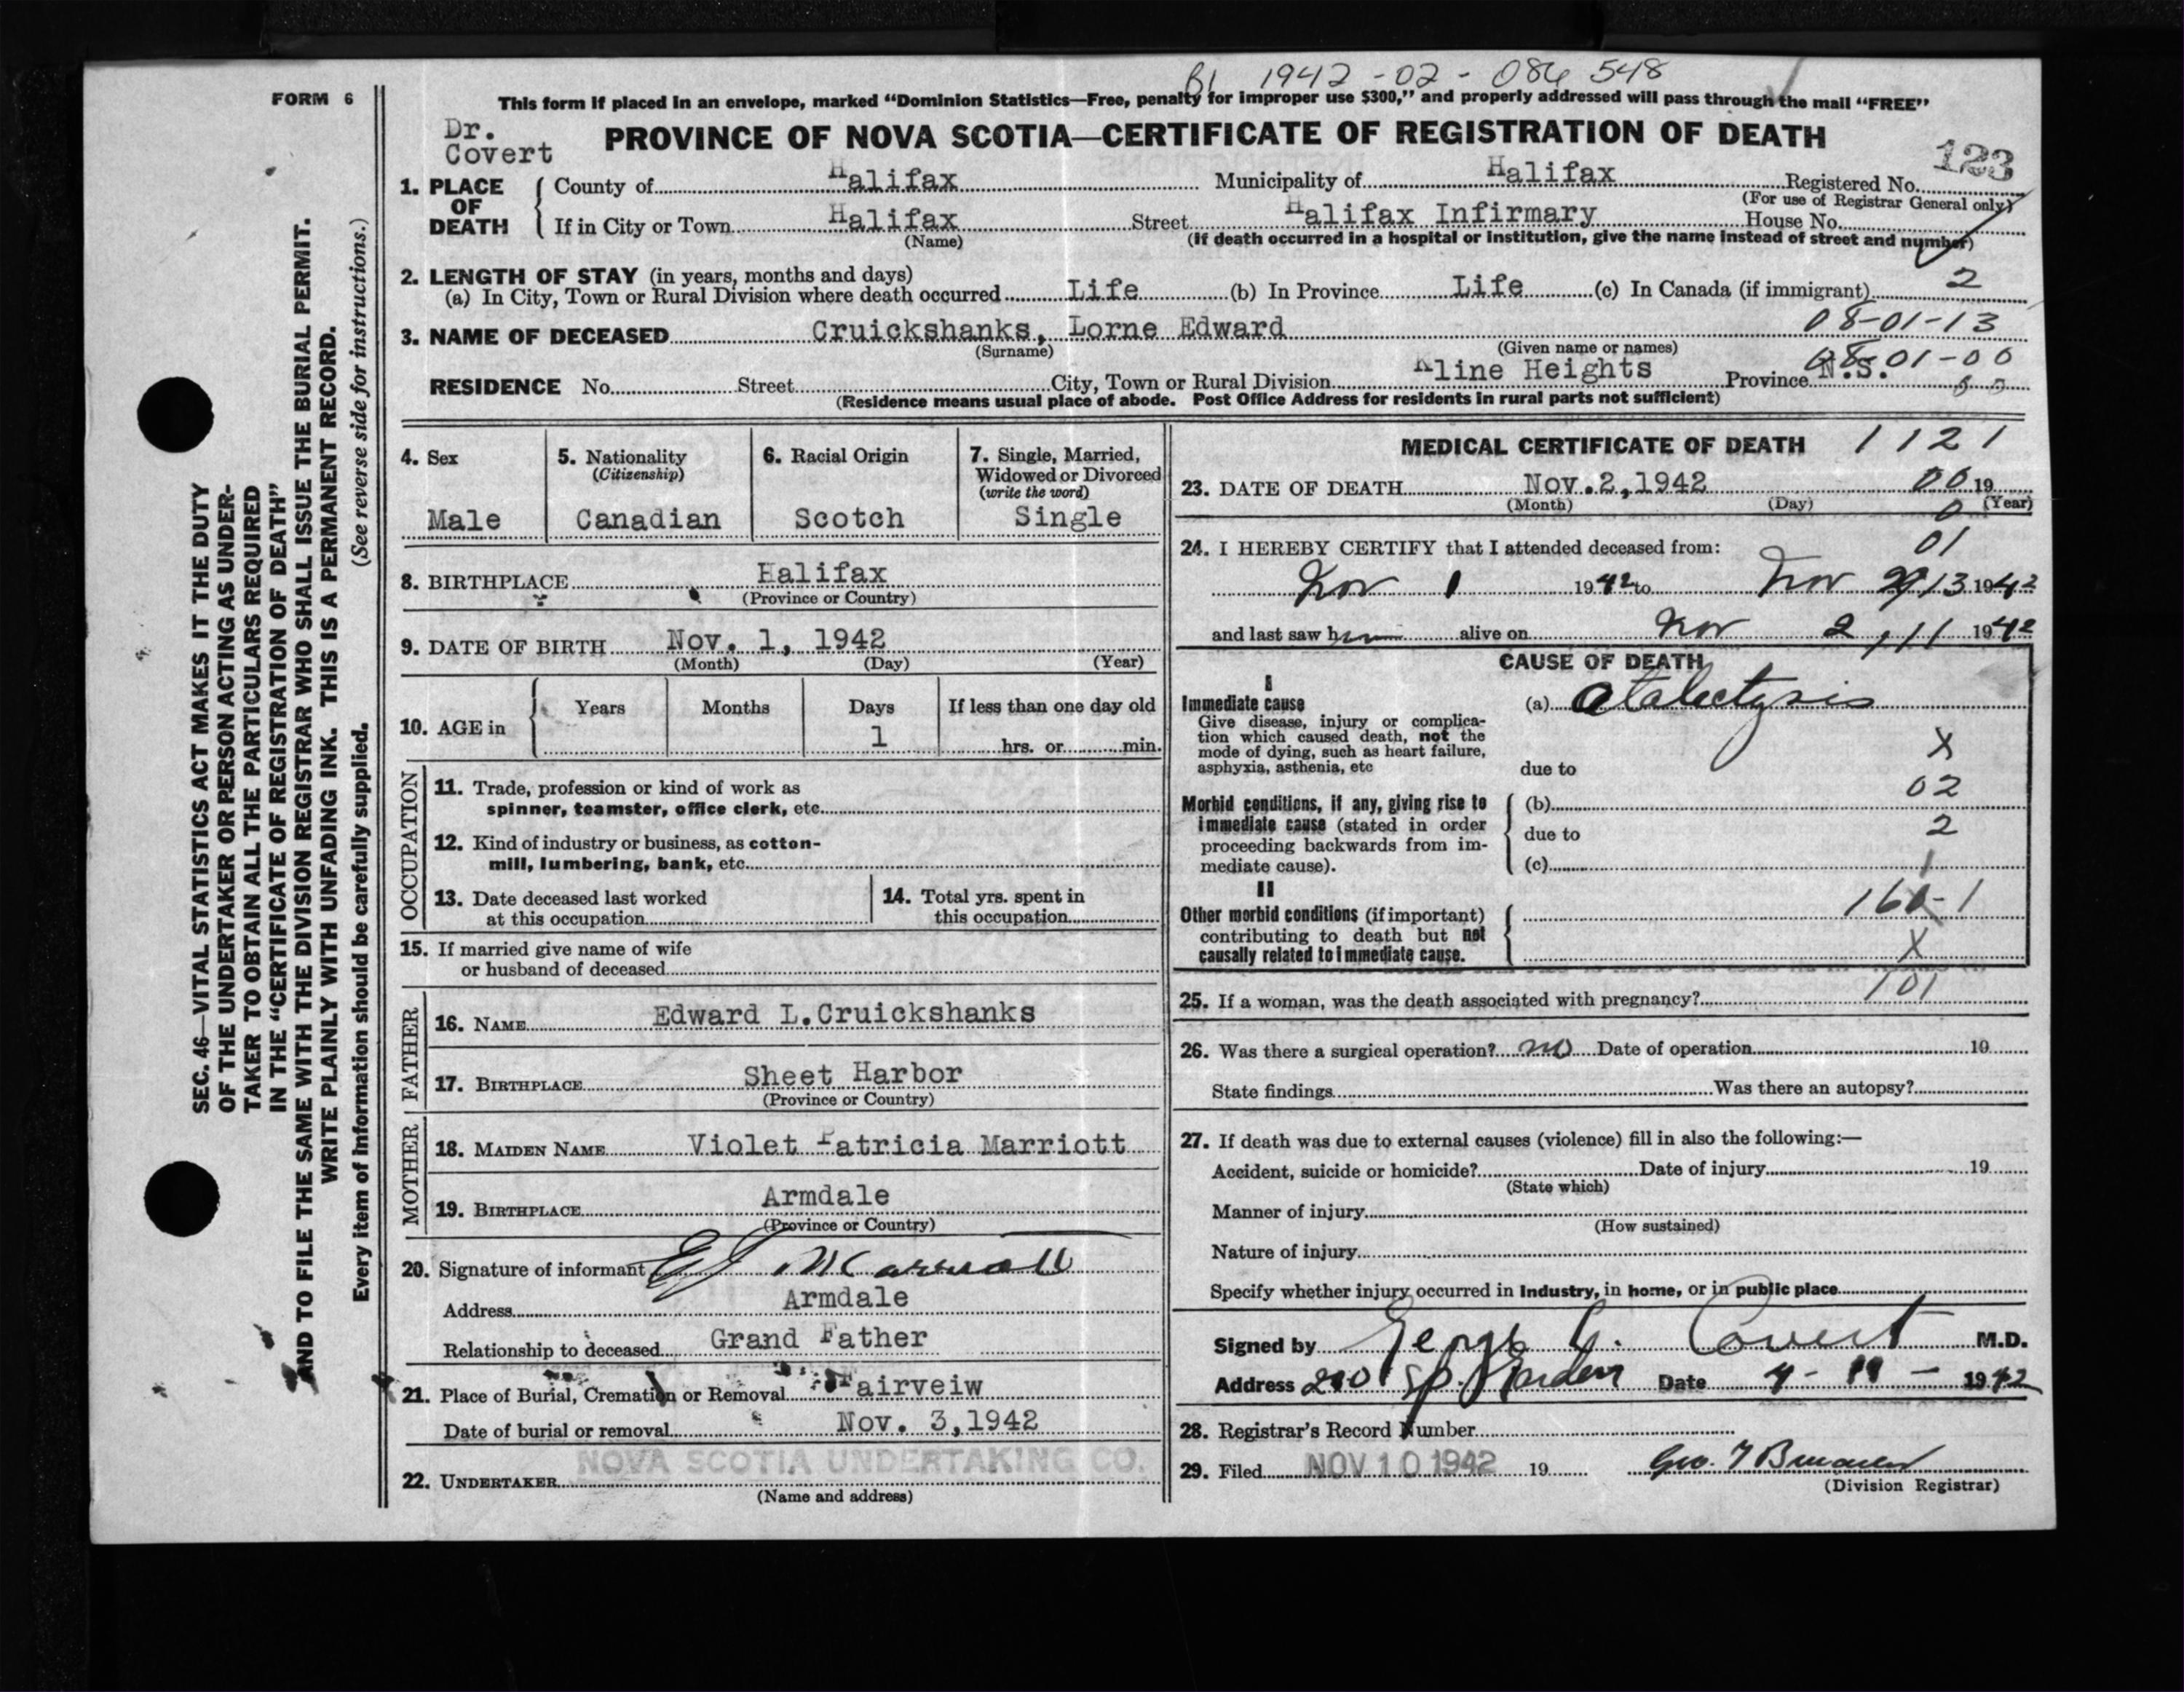 B1 1942-02-086548
FORM 6
This form if placed in an envelope, marked “Dominion Statistics—Free, penalty for improper use $300,” and properly addressed will pass through the mail “FREE”
Dr.
Covert
PROVINCE OF NOVA SCOTIA—CERTIFICATE OF REGISTRATION OF DEATH
123
1. PLACE OF DEATH County of Halifax Municipality of Halifax Registered No.
(For use of Registrar General only)
If in City or Town Halifax Street Halifax Infirmary House No.
(Name) (If death occurred in a hospital or institution, give the name instead of street and number)
2. LENGTH OF STAY (in years, months and days)
(a) In City, Town or Rural Division where death occurred Life (b) In Province Life (c) In Canada (if immigrant) 2
08-01-13
3. NAME OF DECEASED Cruickshanks, Lorne Edward
(Surname) (Given name or names)
08-01-00
RESIDENCE No. Street City, Town or Rural Division Kline Heights Province N.S.
(Residence means usual place of abode. Post Office Address for residents in rural parts not sufficient)
SEC. 46—VITAL STATISTICS ACT MAKES IT THE DUTY
OF THE UNDERTAKER OR PERSON ACTING AS UNDER-
TAKER TO OBTAIN ALL THE PARTICULARS REQUIRED
IN THE “CERTIFICATE OF REGISTRATION OF DEATH”
AND TO FILE THE SAME WITH THE DIVISION REGISTRAR WHO SHALL ISSUE THE BURIAL PERMIT.
WRITE PLAINLY WITH UNFADING INK. THIS IS A PERMANENT RECORD.
Every item of information should be carefully supplied. (See reverse side for instructions.)
4. Sex
Male
5. Nationality
(Citizenship)
Canadian
6. Racial Origin
Scotch
7. Single, Married,
Widowed or Divorced
(write the word)
Single
8. BIRTHPLACE Halifax
(Province or Country)
9. DATE OF BIRTH Nov. 1, 1942
(Month) (Day) (Year)
10. AGE in Years Months Days If less than one day old
1 hrs. or min.
OCCUPATION
11. Trade, profession or kind of work as
spinner, teamster, office clerk, etc.
12. Kind of industry or business, as cotton-
mill, lumbering, bank, etc.
13. Date deceased last worked
at this occupation
14. Total yrs. spent in
this occupation
15. If married give name of wife
or husband of deceased
FATHER
16. NAME Edward L.Cruickshanks
17. BIRTHPLACE Sheet Harbor
(Province or Country)
MOTHER
18. MAIDEN NAME Violet Patricia Marriott
19. BIRTHPLACE Armdale
(Province or Country)
20. Signature of informant
Address Armdale
Relationship to deceased Grand Father
21. Place of Burial, Cremation or Removal Fairveiw
Date of burial or removal Nov. 3,1942
NOVA SCOTIA UNDERTAKING CO.
22. UNDERTAKER
(Name and address)
MEDICAL CERTIFICATE OF DEATH 1121
23. DATE OF DEATH Nov.2,1942 00 19
(Month) (Day) 0 (Year)
24. I HEREBY CERTIFY that I attended deceased from: 01
Nov 1 1942 to Nov 13 1942
and last saw him alive on Nov 2, 11 1942
CAUSE OF DEATH
I
Immediate cause (a) atalectysis
Give disease, injury or complica-
tion which caused death, not the
mode of dying, such as heart failure,
asphyxia, asthenia, etc
X
due to
02
Morbid conditions, if any, giving rise to (b)
immediate cause (stated in order due to 2
proceeding backwards from im-
mediate cause). (c) 1
II
Other morbid conditions (if important)
contributing to death but not
causally related to immediate cause.
X
101
25. If a woman, was the death associated with pregnancy?
26. Was there a surgical operation? no Date of operation 19
State findings Was there an autopsy?
27. If death was due to external causes (violence) fill in also the following:—
Accident, suicide or homicide? Date of injury 19
(State which)
Manner of injury
(How sustained)
Nature of injury
Specify whether injury occurred in Industry, in home, or in public place
Signed by George G. Covert M.D.
Address 210 Sp. Garden Date 4-11-1942
28. Registrar's Record Number
29. Filed NOV 10 1942 19
(Division Registrar)